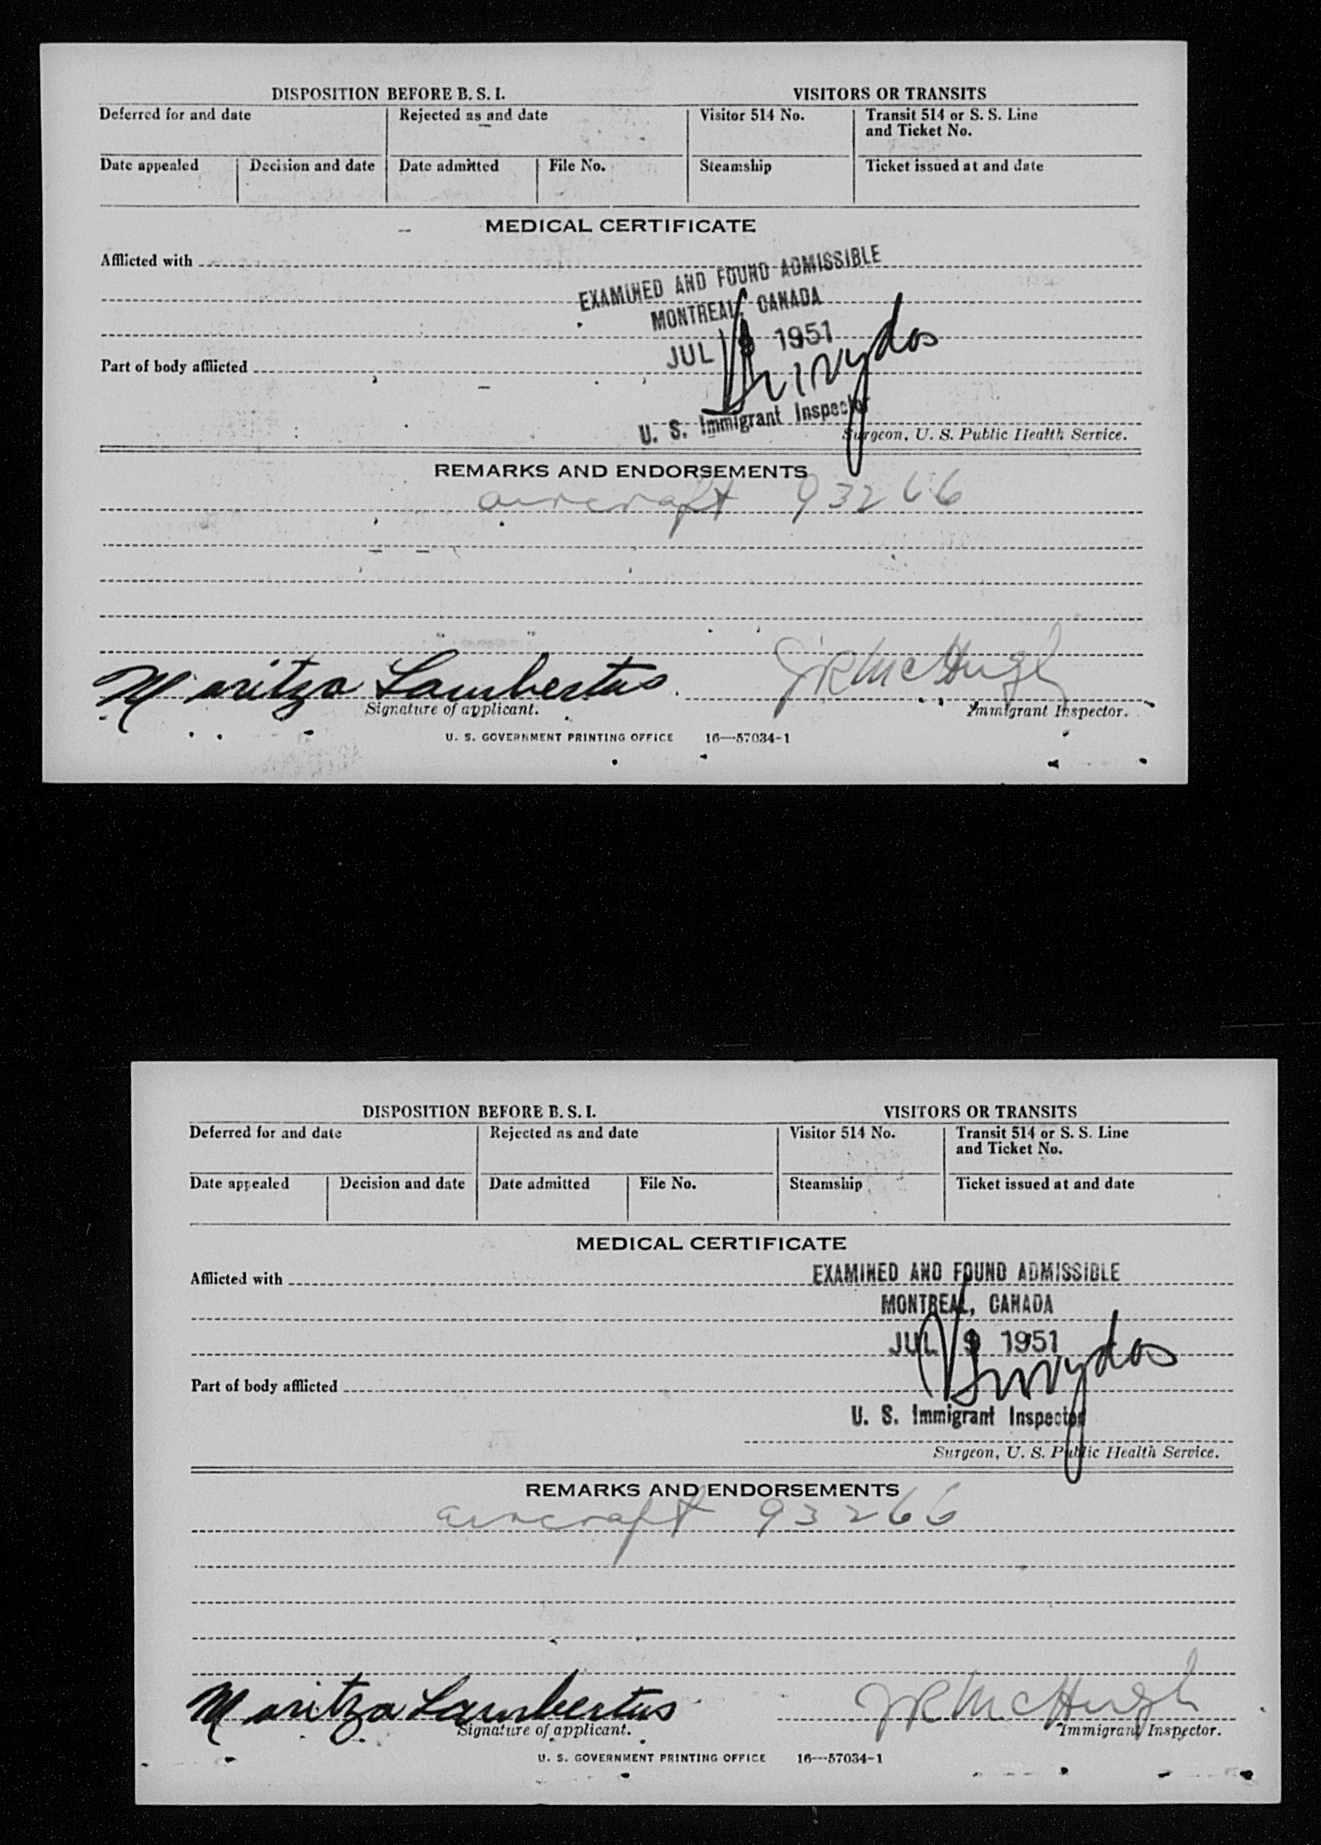 DISPOSITION BEFORE B. S. I. VISITORS OR TRANSITS
Deferred for and date Rejected as and date Visitor 514 No. Transit 514 or S. S. Line
and Ticket No.
Date appealed Decision and date Date admitted File No. Steamship Ticket issued at and date
MEDICAL CERTIFICATE
Afflicted with
EXAMINED AND FOUND ADMISSIBLE
MONTREAL, CANADA
JUL 9 1951
Part of body afflicted
U. S. Immigrant Inspector
Surgeon, U. S. Public Health Service.
REMARKS AND ENDORSEMENTS
aircraft 93266
Maritza Lambertus JR McHugh
Signature of applicant. Immigrant Inspector.
U. S. GOVERNMENT PRINTING OFFICE 16—57034-1
DISPOSITION BEFORE B. S. I. VISITORS OR TRANSITS
Deferred for and date Rejected as and date Visitor 514 No. Transit 514 or S. S. Line
and Ticket No.
Date appealed Decision and date Date admitted File No. Steamship Ticket issued at and date
MEDICAL CERTIFICATE
Afflicted with EXAMINED AND FOUND ADMISSIBLE
MONTREAL, CANADA
JUL 9 1951
Part of body afflicted
U. S. Immigrant Inspector
Surgeon, U. S. Public Health Service.
REMARKS AND ENDORSEMENTS
aircraft 93266
Maritza Lambertus JR McHugh
Signature of applicant. Immigrant Inspector.
U. S. GOVERNMENT PRINTING OFFICE 16—57034-1